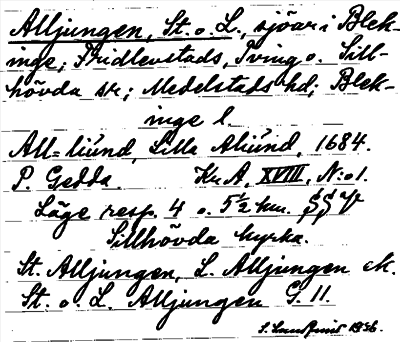 Alljungen, St. o. L., sjöar i Blek-
inge; Fridlevstads, Tving o. Sill-
hövda sr; Medelstads hd; Blek-
inge l.
All-liúnd, Lilla Aliúnd, 1684.
P. Gedda. Kr. A, XVIII, N:o 1.
Läge resp. 4 o. 5½ km.
Sillhövda kyrka.
St. Alljungen, L. Alljungen ek.
St. o. L. Alljungen G. 11.
1936.